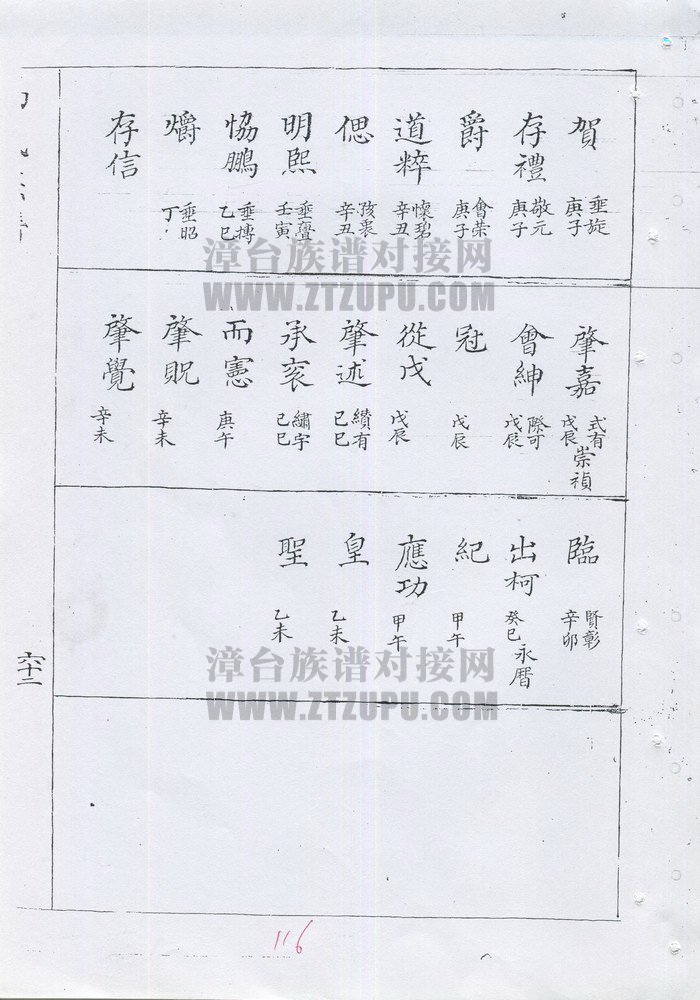 賀
垂旋
庚子
存禮
敬元
庚子
爵
會崇
庚子
道粹
懷碧
辛丑
偲
辛丑
明熙
壬寅
協鵬
垂摶
乙巳
爝
垂昭
丁
存信
肇嘉
式有
戊辰
崇禎
會紳
際可
戊辰
冠
戊辰
從戊
戊辰
肇述
纘有
己巳
承衮
繡宇
己巳
而憲
庚午
肇貺
辛未
肇覺
辛未
臨
賢彰
辛卯
出柯
癸巳
永曆
紀
甲午
應功
甲午
皇
乙未
聖
乙未
六十二
116
漳台族谱对接网
WWW.ZTZUPU.COM
漳台族谱对接网
WWW.ZTZUPU.COM